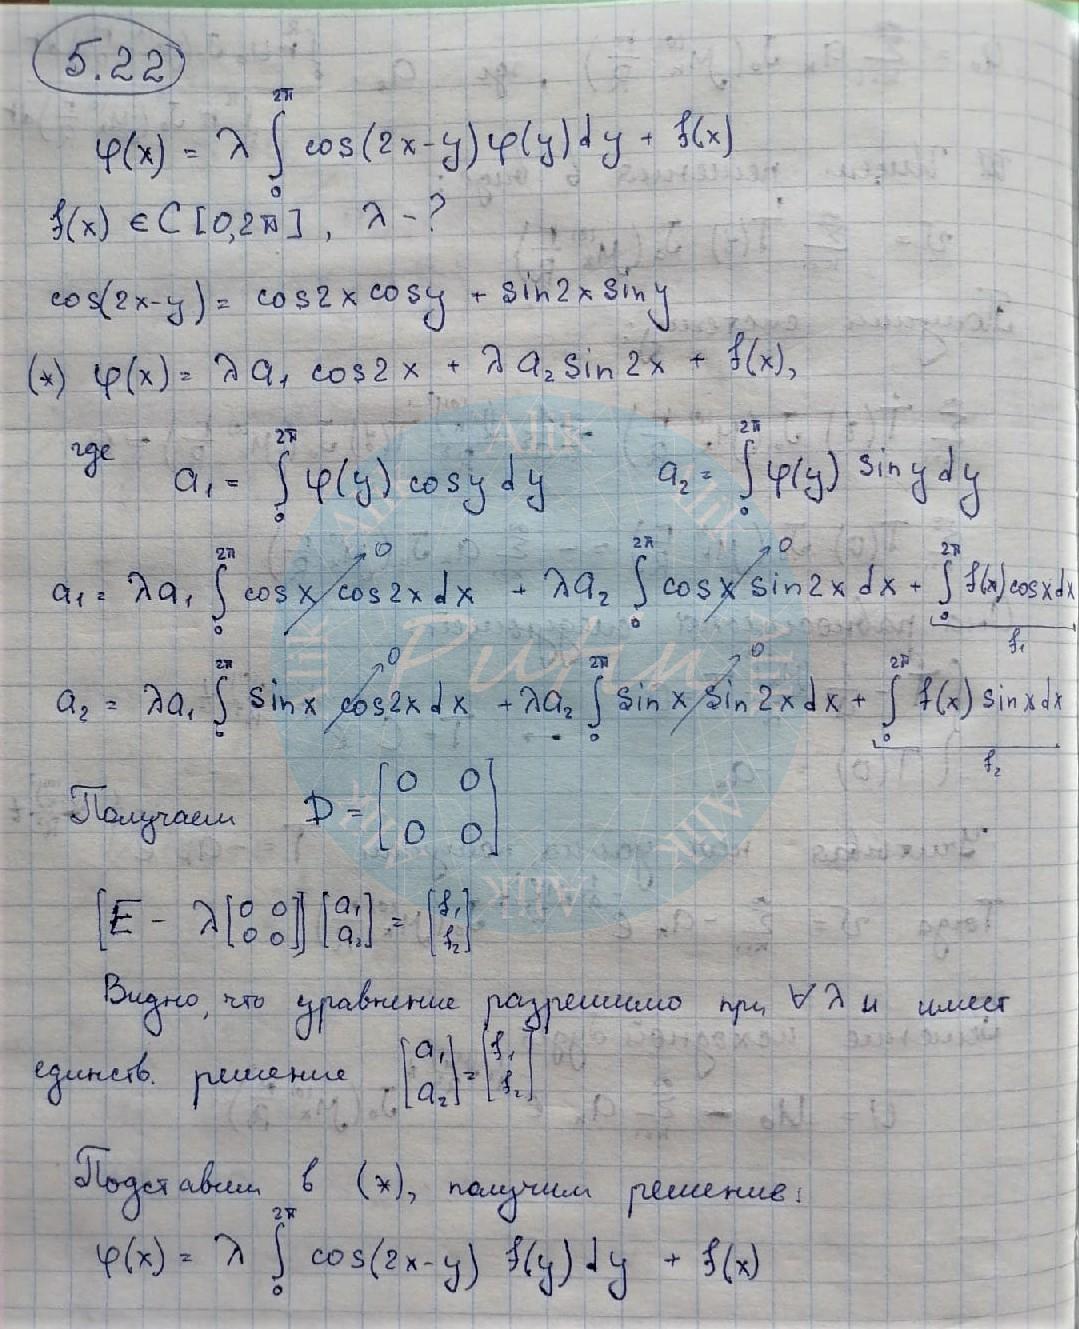 5.22
φ(x) = λ ∫₀^{2π} cos(2x-y)φ(y)dy + f(x)
f(x) ∈ C[0,2π], λ - ?
cos(2x-y) = cos2x cosy + sin2x siny
(*) φ(x) = λa₁ cos2x + λa₂ sin2x + f(x),
где a₁ = ∫₀^{2π} φ(y) cosy dy a₂ = ∫₀^{2π} φ(y) siny dy
a₁ = λa₁ ∫₀^{2π} cosx cos2x dx → 0 + λa₂ ∫₀^{2π} cosx sin2x dx → 0 + ∫₀^{2π} f(x) cosx dx
f₁
a₂ = λa₁ ∫₀^{2π} sinx cos2x dx → 0 + λa₂ ∫₀^{2π} sinx sin2x dx → 0 + ∫₀^{2π} f(x) sinx dx
f₂
Получаем D = [0 0; 0 0]
[E - λ[0 0; 0 0]] [a₁; a₂] = [f₁; f₂]
Видно, что уравнение разрешимо при ∀λ и имеет
единств. решение [a₁; a₂] = [f₁; f₂]
Подставим в (*), получим решение:
φ(x) = λ ∫₀^{2π} cos(2x-y) f(y)dy + f(x)
Alik
Putin